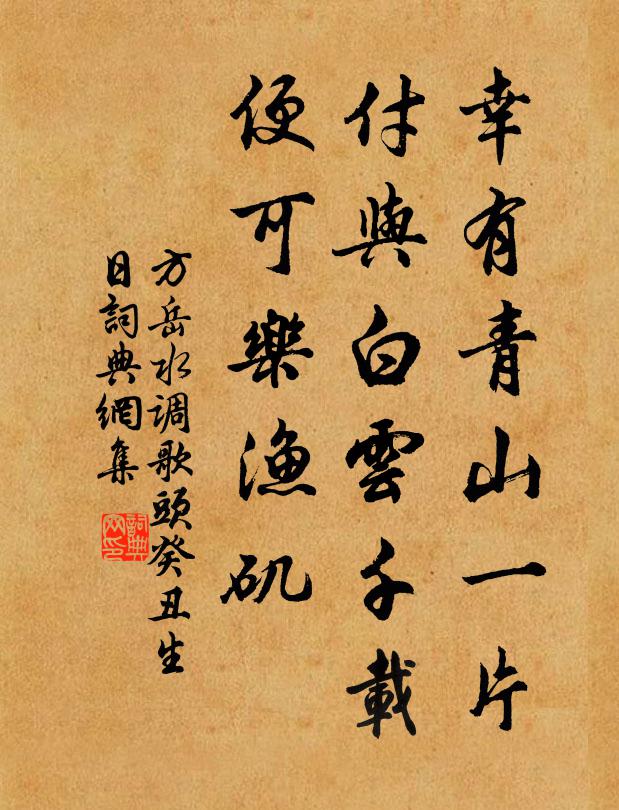 幸有青山一片
付與白雲千載
便可樂漁矶
方岳水调歌頭癸丑生
日詞典網集
詞典网印